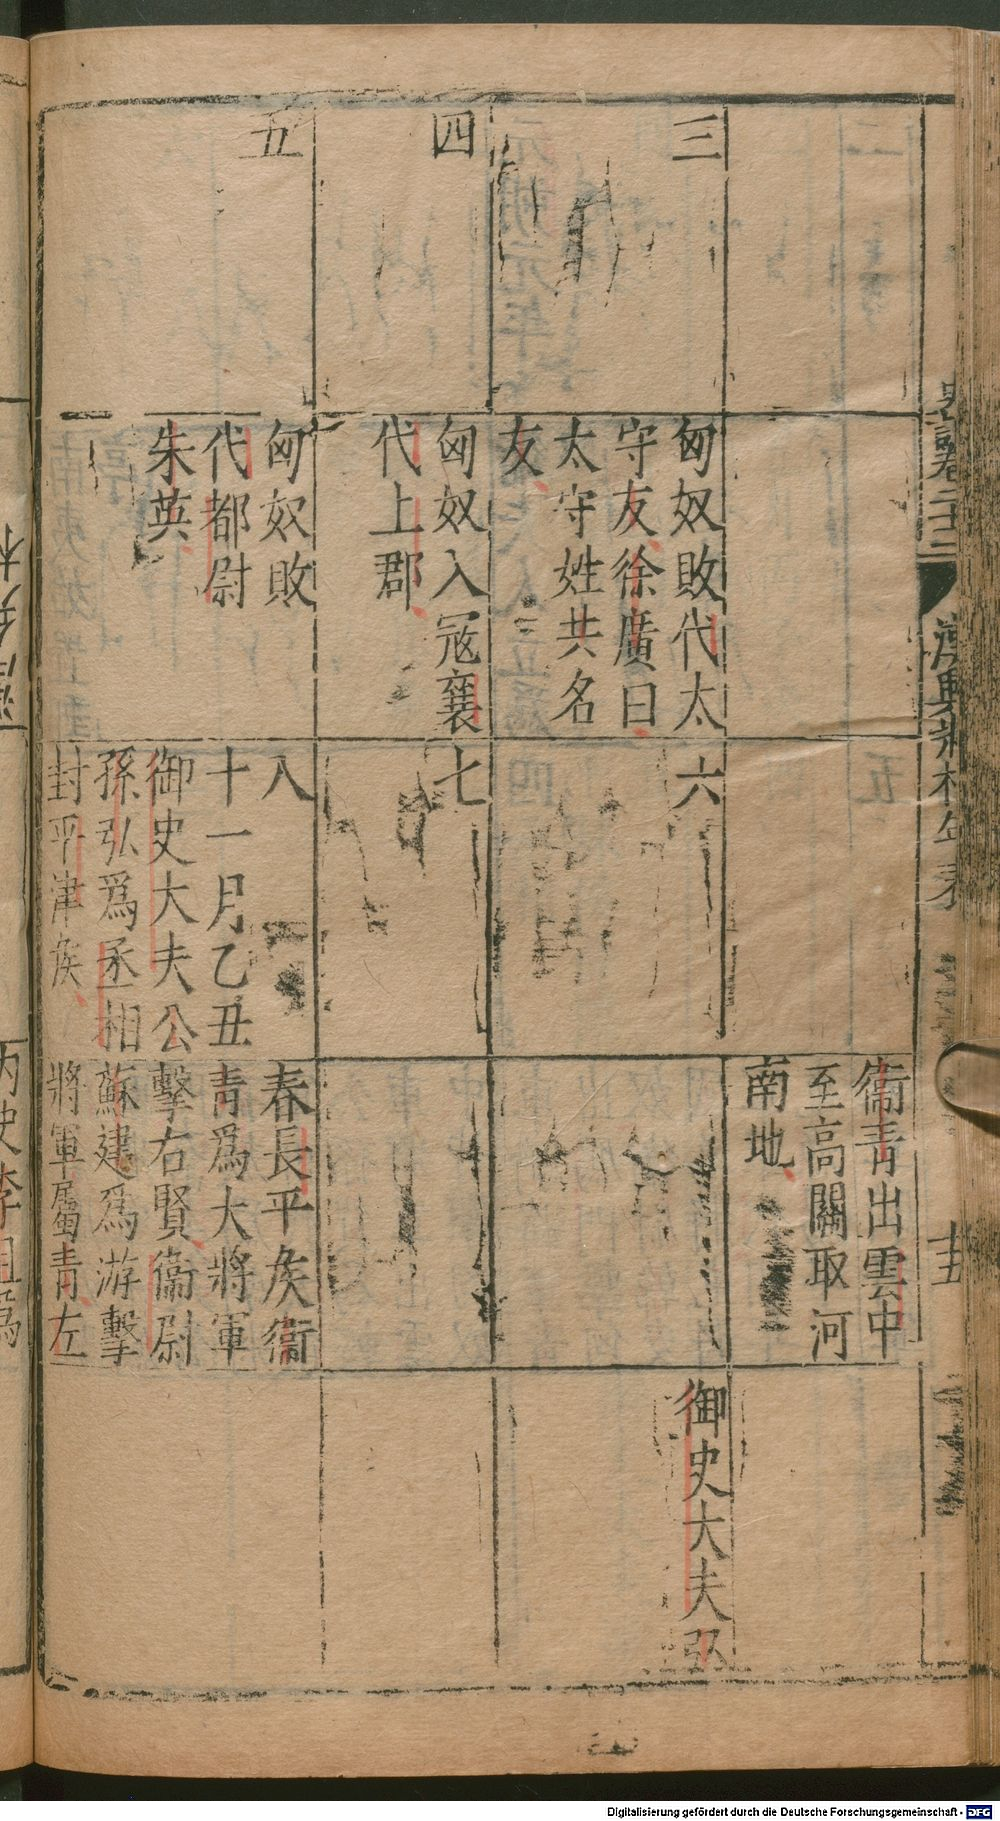 衞青出雲中
至高闕取河
南地
三
匈奴敗代太
守友徐廣曰
太守姓共名
友
六
御史大夫弘
四
匈奴入寇襄
代上郡
七
五
匈奴敗
代都尉
朱英
八
十一月乙丑
御史大夫公
孫弘爲丞相
封平津矦
春長平矦衞
青爲大將軍
擊右賢衞尉
蘇建爲游擊
將軍屬青左
漢興將相年表
Digitalisierung gefördert durch die Deutsche Forschungsgemeinschaft - DFG